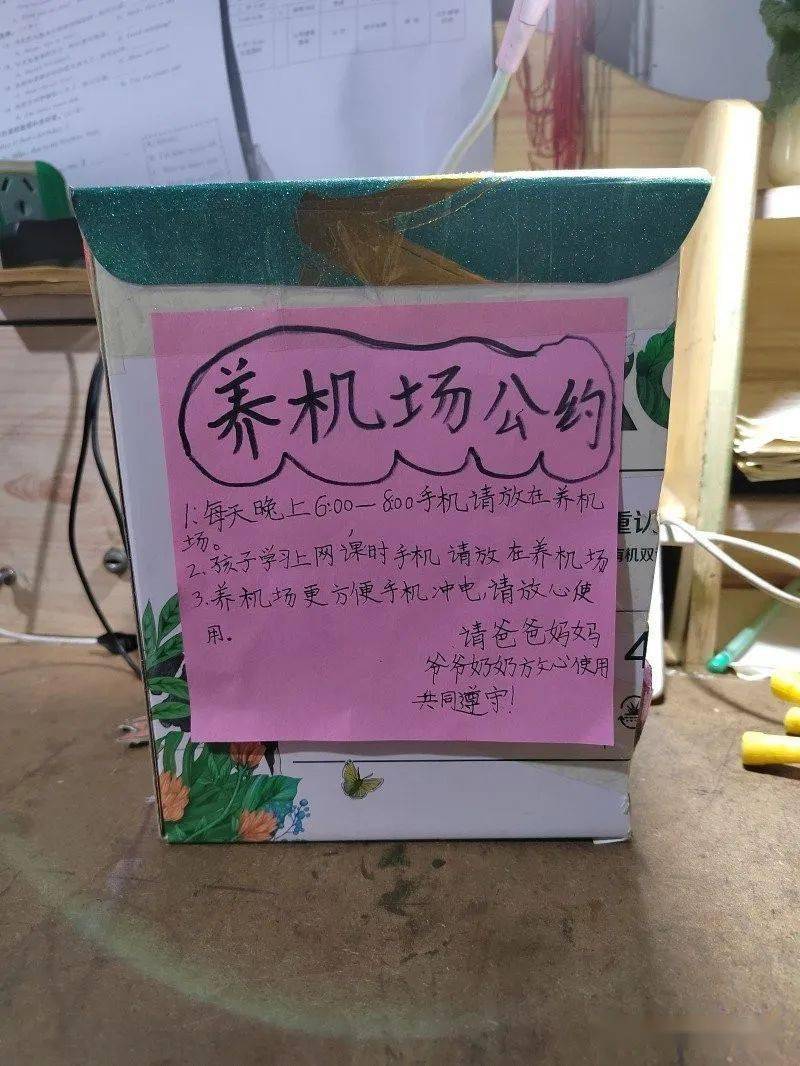 养机场公约
1.每天晚上6:00—8:00手机请放在养机
场。
2.孩子学习上网课时手机请放在养机场
3.养机场更方便手机冲电,请放心使
用。
请爸爸妈妈
爷爷奶奶放心使用
共同遵守!
重认
有机双
4